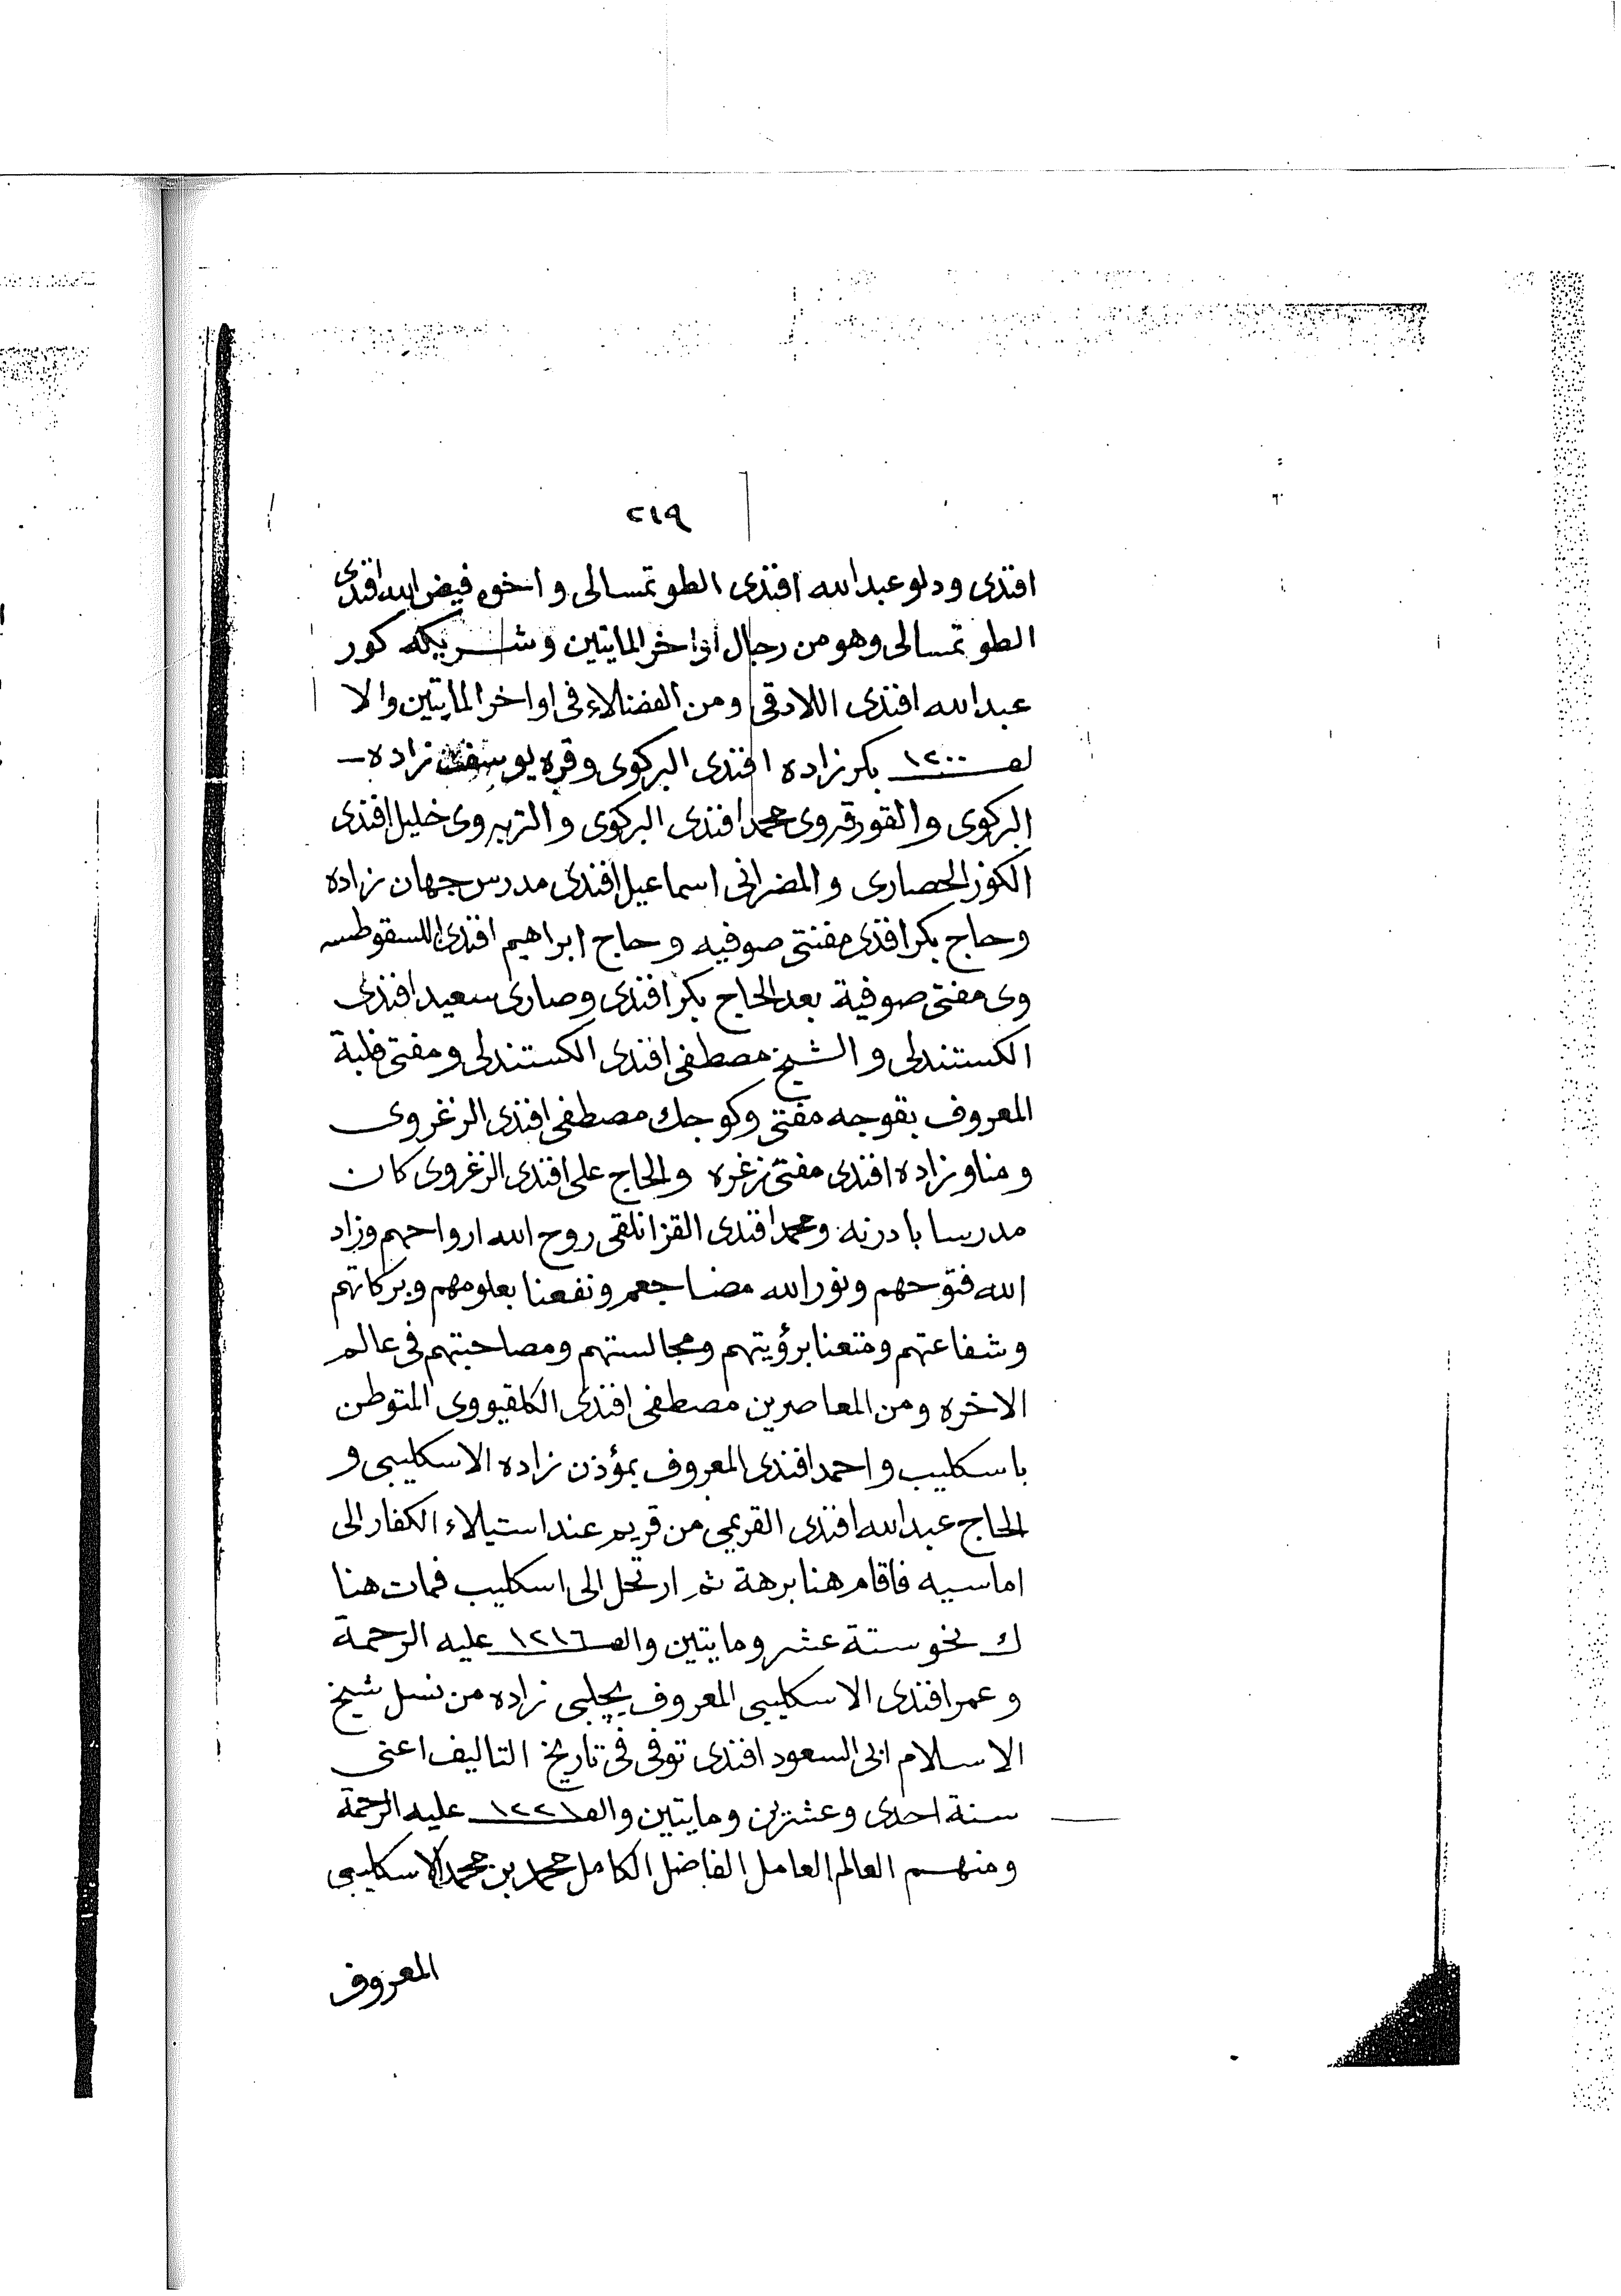 ٢١٩
افندى ودلو عبد الله افندى الطوتمسالى واخوه فيض الله افندى
الطوتمسالى وهو من رجال اواخر المايتين وشريكه كور
عبد الله افندى اللادقى ومن الفضلاء فى اواخر المايتين والا
لف ١٢٠٠ بكر زاده افندى البركوى وقره يوسف زاده
البركوى والقورقروى محمد افندى البركوى والتريروى خليل افندى
الكوز الحصارى والمضرانى اسماعيل افندى مدرس جهان زاده
وحاج بكر افندى مفتى صوفيه وحاج ابراهيم افندى السقوطسه
وى مفتى صوفية بعد الحاج بكر افندى وصارى سعيد افندى
الكستندلى والشيخ مصطفى افندى الكستندلى ومفتى فلبة
المعروف بقوجه مفتى وكوجك مصطفى افندى الزغروى
ومناو زاده افندى مفتى زغره والحاج على افندى الزغروى كان
مدرسا بادرنه ومحمد افندى القزانلقى روح الله ارواحهم وزاد
الله فتوحهم ونور الله مضاجعهم ونفعنا بعلومهم وبركاتهم
وشفاعتهم ومتعنا برؤيتهم ومجالستهم ومصاحبتهم فى عالم
الاخره ومن المعاصرين مصطفى افندى الكلقيووى المتوطن
باسكليب واحمد افندى المعروف بمؤذن زاده الاسكليبى و
الحاج عبد الله افندى القريمى من قريم عند استيلاء الكفار الى
اماسيه فاقام هنا برهة ثم ارتحل الى اسكليب فمات هنا
ك نحو ستة عشر ومايتين والف ١٢١٦ عليه الرحمة
وعمر افندى الاسكليبى المعروف بچلبى زاده من نسل شيخ
الاسلام ابى السعود افندى توفى فى تاريخ التاليف اعنى
سنة احدى وعشرين ومايتين والف ١٢٢١ عليه الرحمة
ومنهم العالم العامل الفاضل الكامل محمد بن محمد الاسكليبى
المعروف